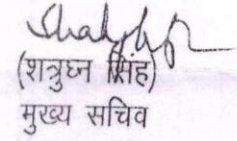 (शत्रुघ्न सिंह)
मुख्य सचिव